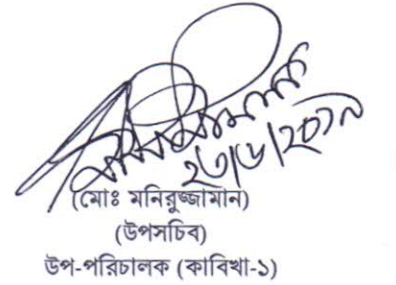 ২৩/৬/২০১৯
(মোঃ মনিরুজ্জামান)
(উপসচিব)
উপ-পরিচালক (কাবিখা-১)